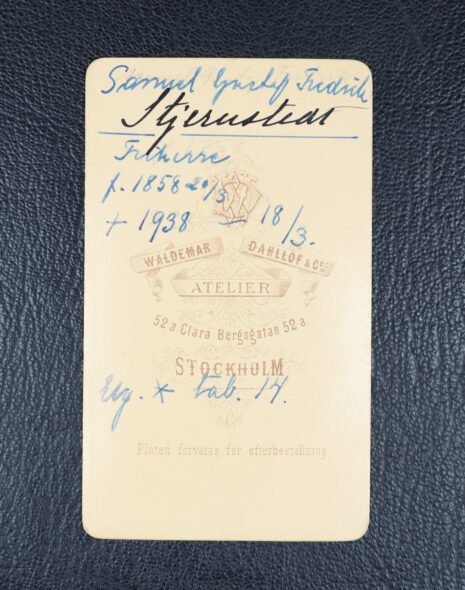 Samuel Gustaf Fredrik
Stjernstedt
Friherre
f. 1858 20/3
+ 1938 — 18/3.
WALDEMAR DAHLLÖF & Co
ATELIER
52 a Clara Bergsgatan 52 a.
STOCKHOLM
Elg. * tab. 14.
Plåten förvaras för efterbeställning